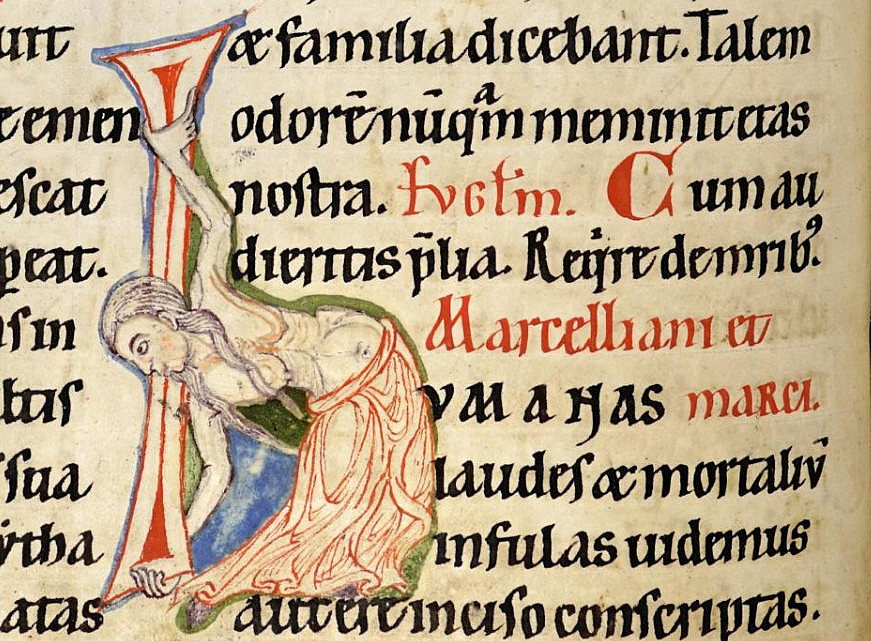 emen
escat
peat.
sin
ssua
ẏtha
atas
& familia dicebant. Talem
odorē nūqᵃm meminit etas
nostra. Evgl̄m. Cum au
dieritis p̄lia. Reqⁱre de mrib⁹.
Marcelliani et
HVMANAS marci.
laudes & mortaliū
infulas uidemus
aut ere inciso conscriptas.